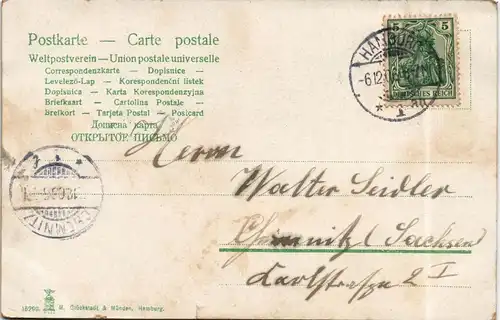 Postkarte — Carte postale
Weltpostverein — Union postale universelle
Correspondenzkarte — Dopisnice —
Levelező-Lap — Korespondenční lístek
Dopisnica — Karta Korespondenzyjna
Briefkaart — Cartolina Postale —
Brefkort — Tarjeta Postal — Postcard
Дописна карта
ОТКРЫТОЕ ПИСЬМО
5 5
HAMBURG
DEUTSCHES REICH
* 1
CHEMNITZ
Herrn
Walter Seidler
Chemnitz (Sachsen
Karlstrasse 2 I
M. Glückstadt & Münden, Hamburg.